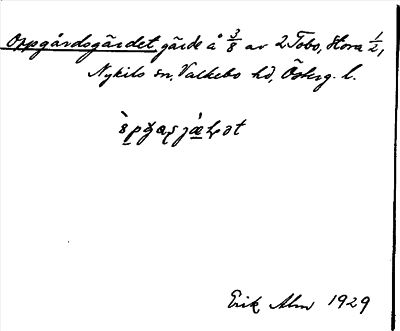 Oppgårdsgärdet gärde å 3/8 av 2 Tobo, Stora 1/2,
Nykils sn, Valkebo hd, Österg. l.
Erik Alm 1929